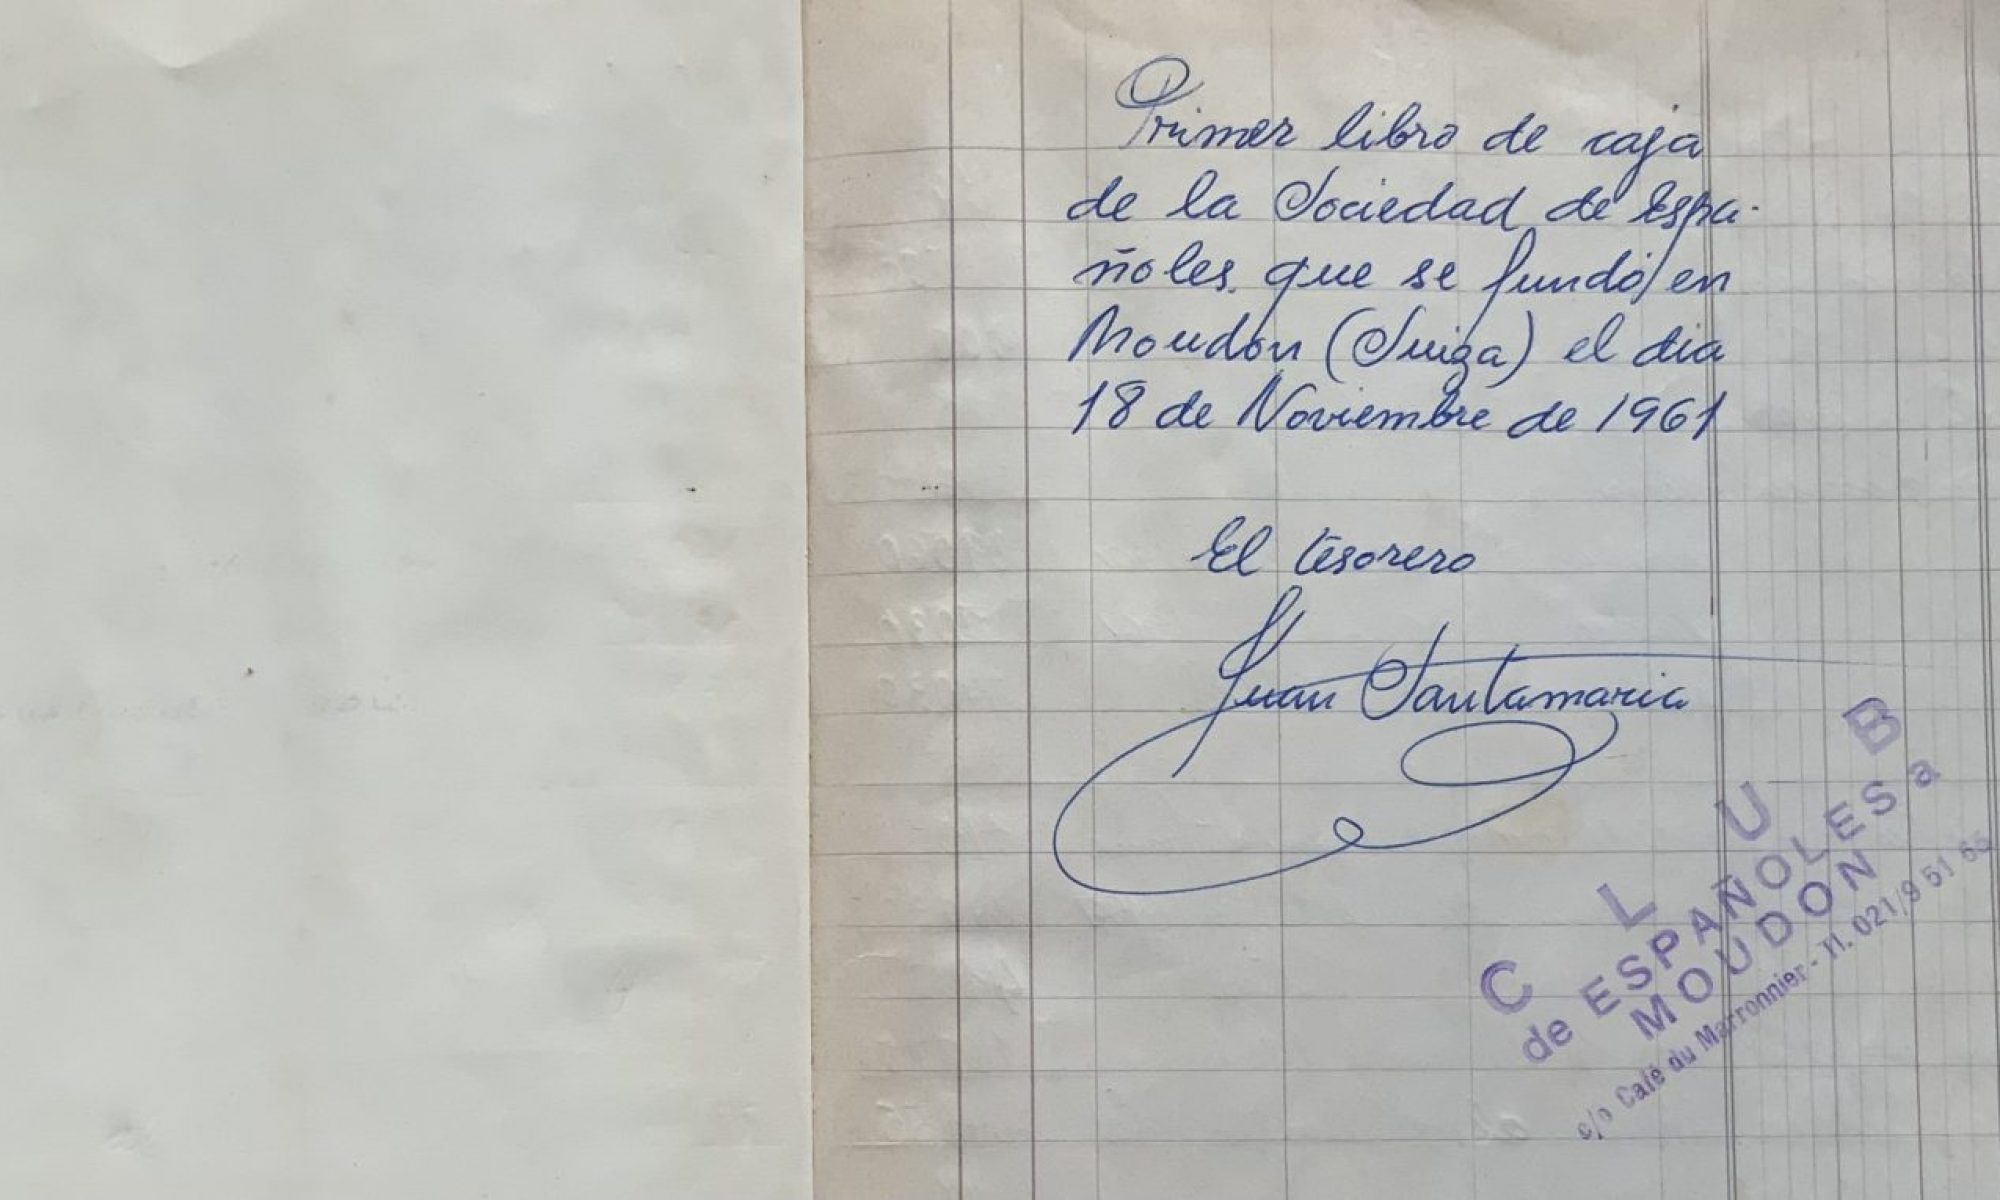 Primer libro de caja
de la Sociedad de Espa-
ñoles que se fundó en
Moudon (Suiza) el dia
18 de Noviembre de 1961
El tesorero
Juan Santamaria
CLUB
de ESPAÑOLES a
MOUDON
c/o Café du Marronnier - Tl. 021/9 51 65